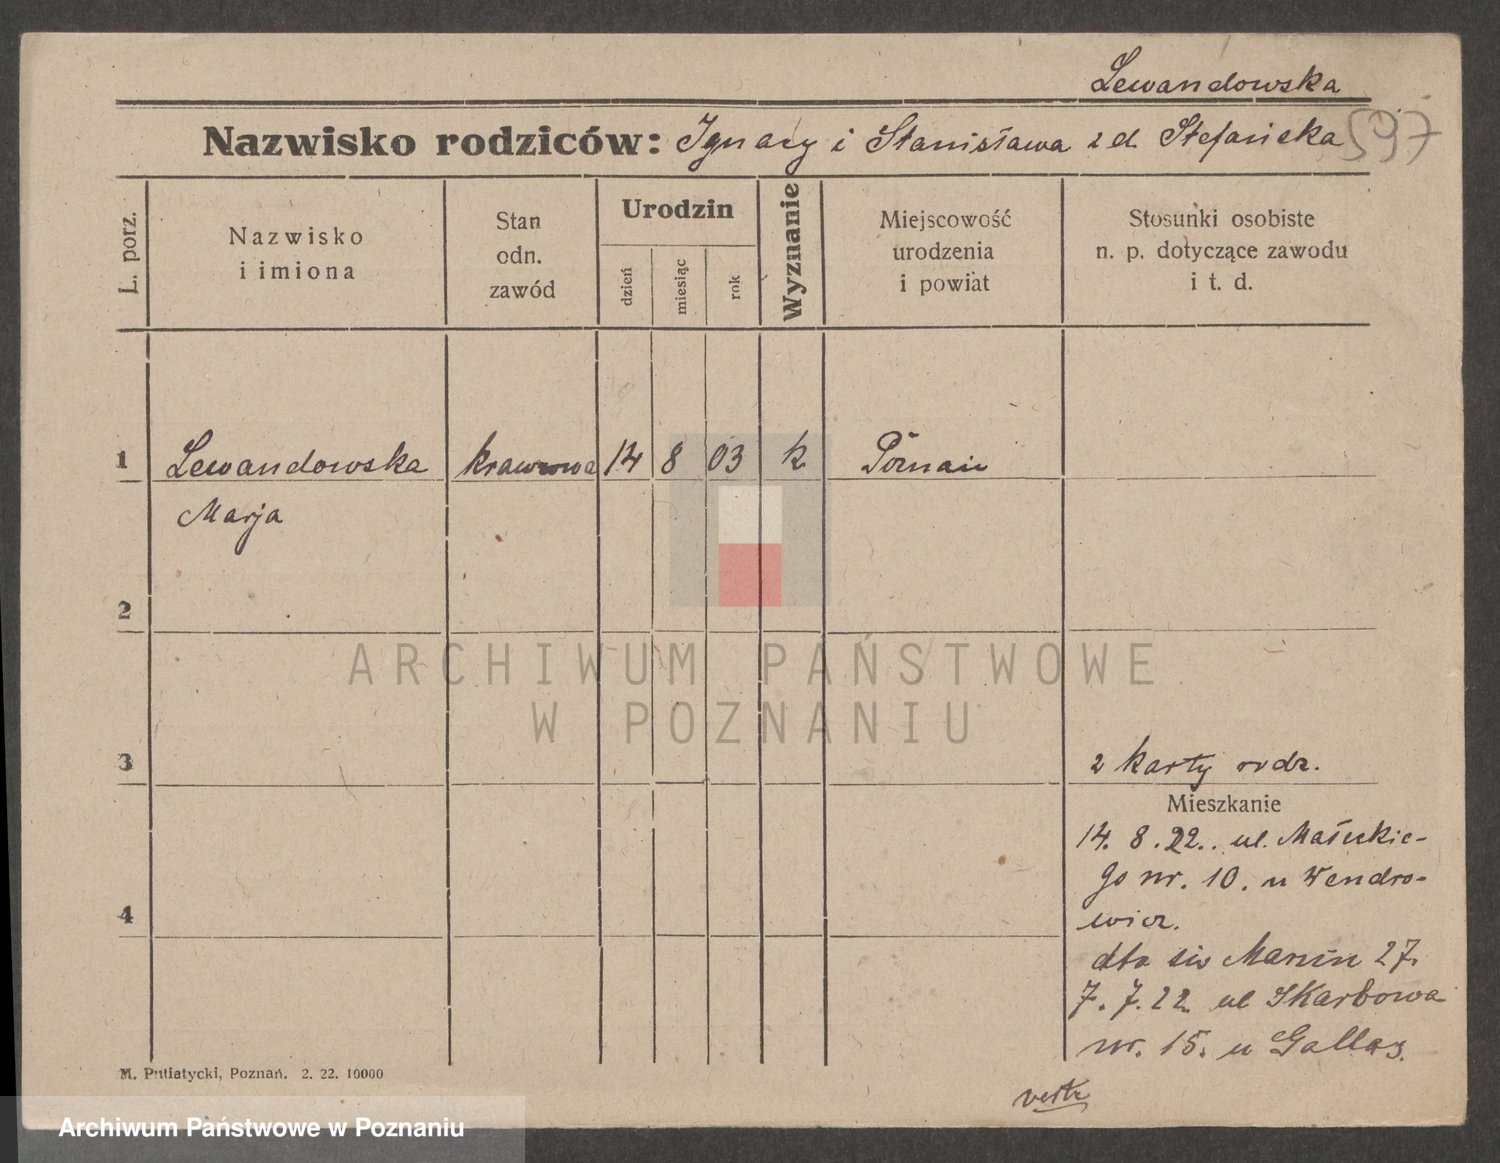 Lewandowska
Nazwisko rodziców: Ignacy i Stanisława z d. Stefańska 597
L. porz.
Nazwisko
i imiona
Stan
odn.
zawód
Urodzin
dzień
miesiąc
rok
Wyznanie
Miejscowość
urodzenia
i powiat
Stosunki osobiste
n. p. dotyczące zawodu
i t. d.
1 Lewandowska krawcowa 14 8 03 k Poznań
Marja
2
3 2 karty rodz.
Mieszkanie
14. 8. 22. ul. Małeckie-
go nr. 10. u Wendro-
4 wicz.
dto św Marcin 27.
7. 7. 22 ul Skarbowa
nr. 15. u Gallas.
M. Putiatycki, Poznań. 2. 22. 10000
ARCHIWUM PAŃSTWOWE
W POZNANIU
Archiwum Państwowe w Poznaniu